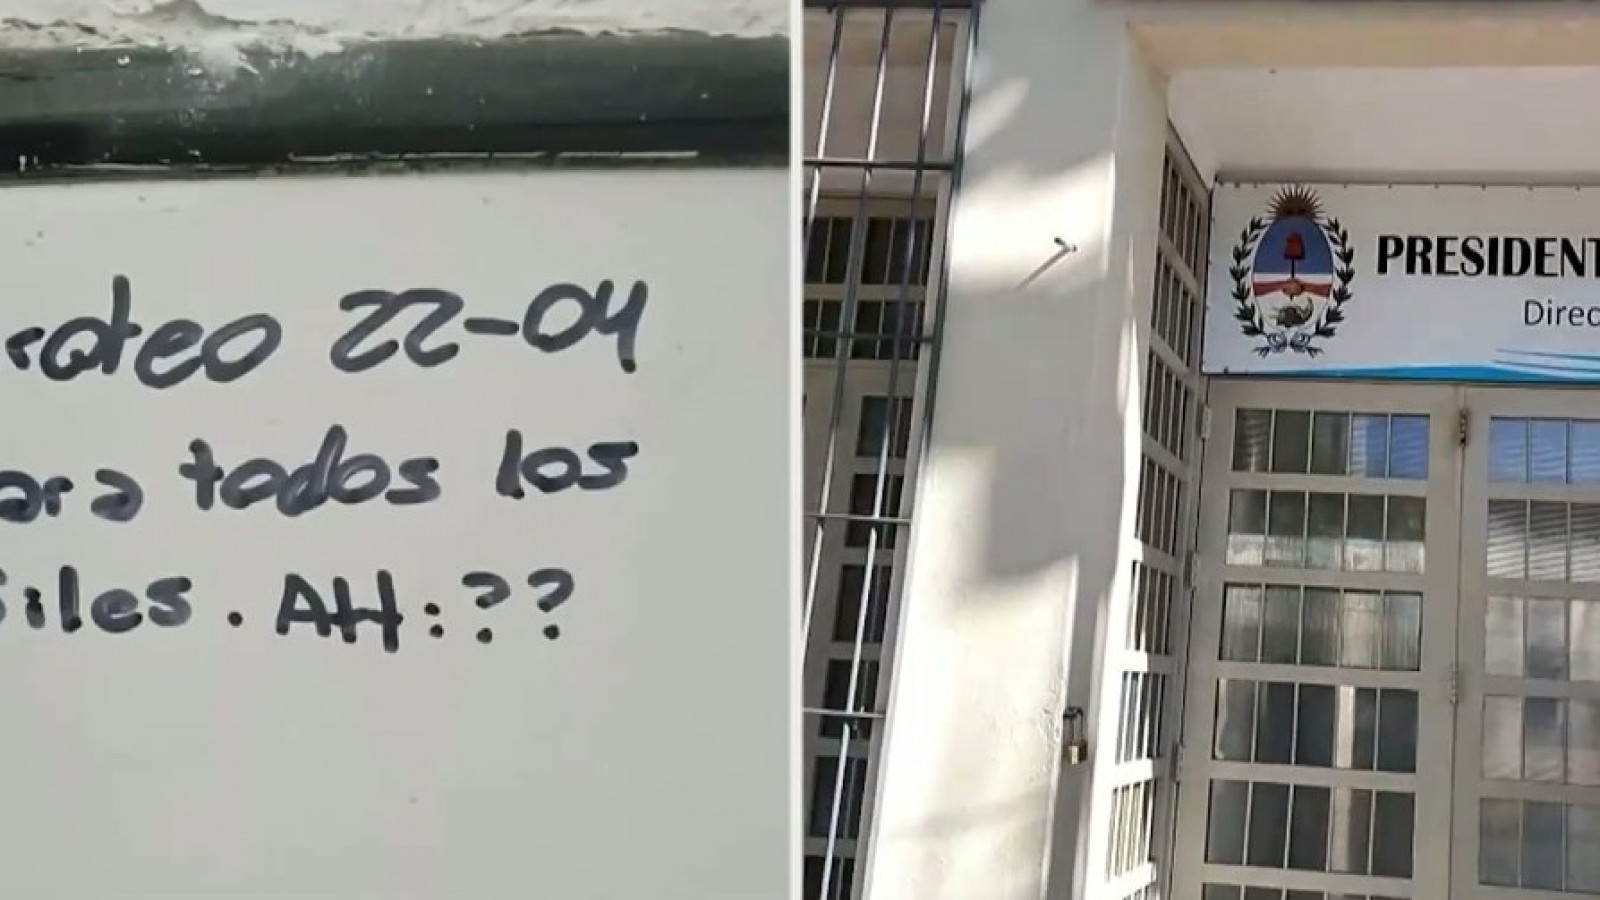 roteo 22-04
ara todos los
iles. AH:??
PRESIDENT
Direc